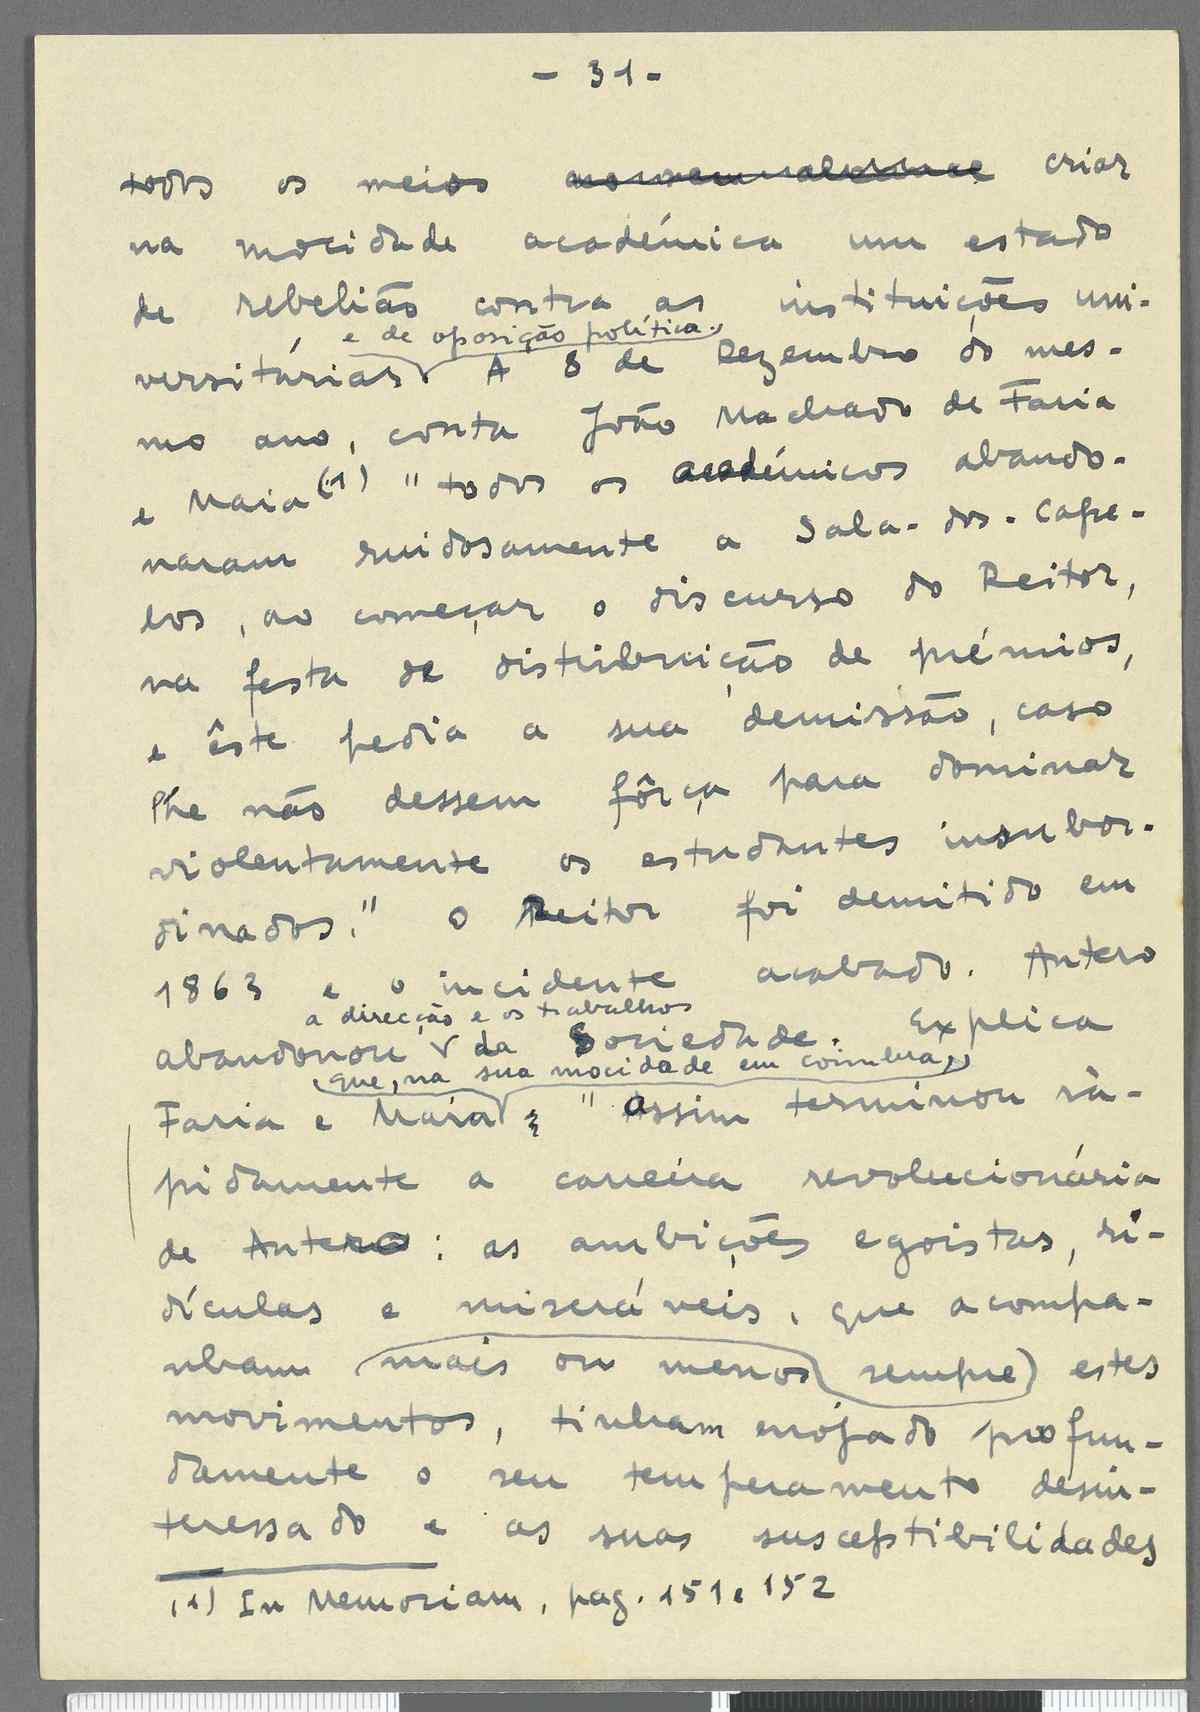 - 31 -
todos os meios criar
na mocidade académica um estado
de rebelião contra as instituições uni-
e de oposição política.
versitárias A 8 de Dezembro do mes-
mo ano, conta João Machado de Faria
e Maia (1) "todos os académicos abando-
naram ruidosamente a Sala-dos-Cape-
los, ao começar o discurso do Reitor,
na festa de distribuição de prémios,
e êste pedia a sua demissão, caso
lhe não dessem fôrça para dominar
violentamente os estudantes insubor-
dinados." O Reitor foi demitido em
1863 e o incidente acabado. Antero
a direcção e os trabalhos
abandonou da Sociedade. Explica
que, na sua mocidade em Coimbra,
Faria e Maia "assim terminou rà-
pidamente a carreira revolucionária
de Antero: as ambições egoistas, ri-
dículas e miseráveis, que acompa-
nham mais ou menos sempre estes
movimentos, tinham enojado profun-
damente o seu temperamento desin-
teressado e as suas susceptibilidades
(1) In Memoriam, pag. 151 e 152